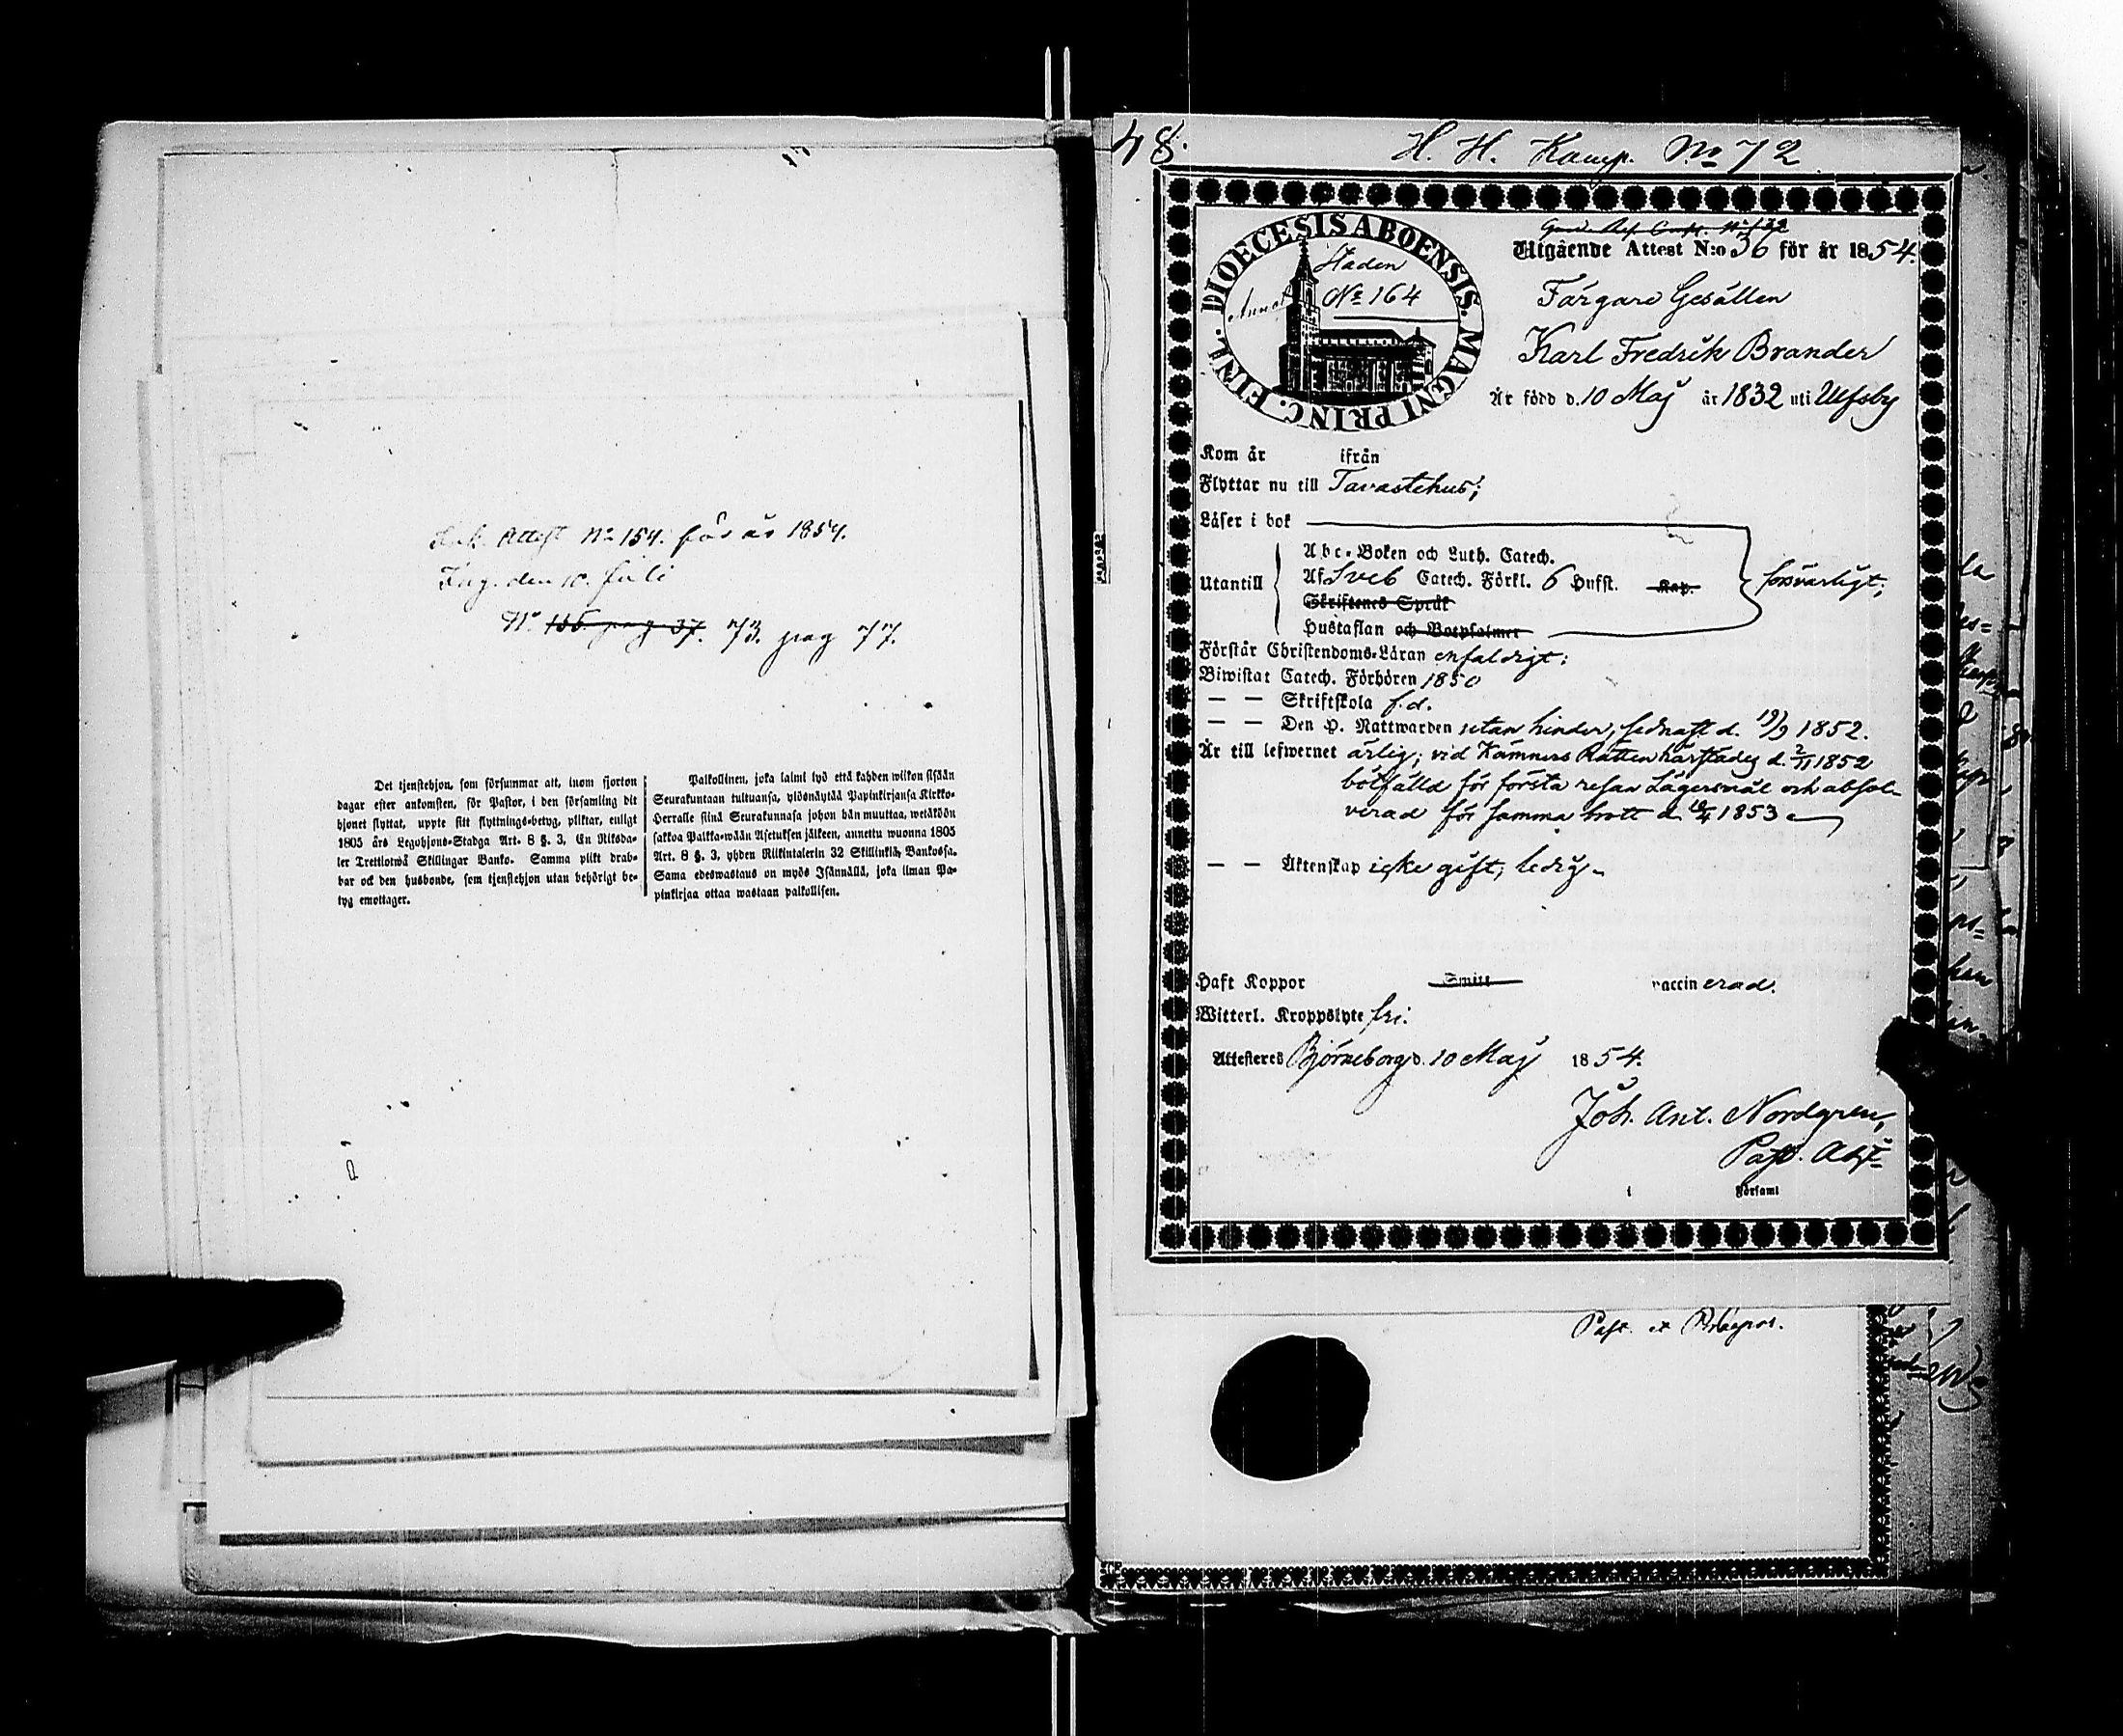 Ink. Attest No 154. för år 1854.
Ing. den 10. Juli
No. 136. pag 37. 73. pag 77.
Det tjenstehjon, som försummar att, inom fjorton
dagar efter ankomsten, för Pastor, i den församling dit
hjonet flyttat, uppte sitt flyttnings-betyg, pliktar, enligt
1805 års Legohjons-Stadga Art. 8 §. 3, En Riksda-
ler Trettiotwå Skillingar Banko. Samma plikt drab-
bar ock den husbonde, som tjenstehjon utan behörigt be-
tyg emottager.
Palkollinen, joka laimi lyö että kahden wiikon sisään
Seurakuntaan tultuansa, ylösnäytää Papinkirjansa Kirkko-
Herralle siinä Seurakunnasa johon hän muuttaa, wetäköön
sakkoa Palkka-wään Asetuksen jälkeen, annettu wuonna 1805
Art. 8 §. 3, yhden Riikintalerin 32 Skillinkiä Bankossa.
Sama edeswastaus on myös Isännällä, joka ilman Pa-
pinkirjaa ottaa wastaan palkollisen.
48.
H. H. Kamp. No 72
DIOECESIS ABOENSIS. MAGNI PRINC. FINL.
Staden
No 164
Utgående Attest N:o 36 för år 1854.
Färgare Gesällen
Karl Fredrik Brander
Är född d. 10 Maj år 1832 uti Ulfsby
Kom år ifrån
Flyttar nu till Tavastehus;
Läser i bok
Utantill
Abc-Boken och Luth. Catech.
Af Sveb Catech. Förkl. 6 Hufst. Kap.
Skriftenes Språk
Hustaflan och Botpsalmer
försvarligt;
Förstår Christendoms-Läran enfaldigt;
Biwistat Catech. Förhören 1850
— — Skriftskola f.d.
— — Den H. Nattwarden utan hinder, sednast d. 19/9 1852.
Är till lefwernet ärlig; vid Kämners Rätten härstädes d. 2/11 1852
bötfälld för första resan Lägersmål och absol-
verad för samma brott d. 10/4 1853
— — Äktenskap icke gift, ledig.
Haft Koppor Smitt vaccinerad.
Witterl. Kroppslyte fri.
Attesteres Björneborg d. 10 Maj 1854.
Joh. Ant. Nordgren,
Past. Adj.
i Församl
Past. et Præpos.